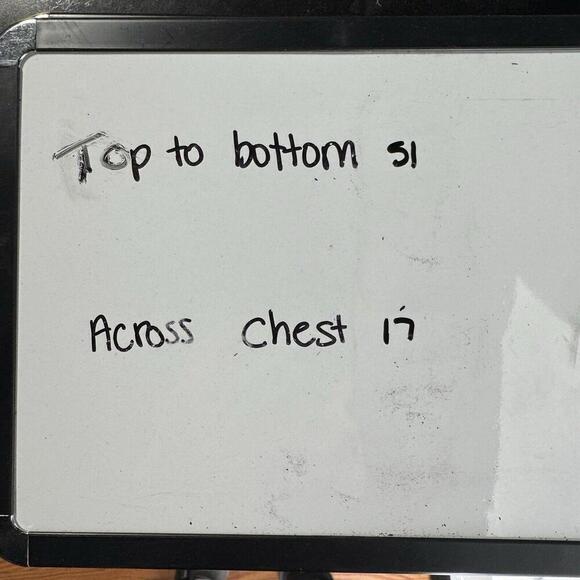 Top to bottom 51
Across chest 17